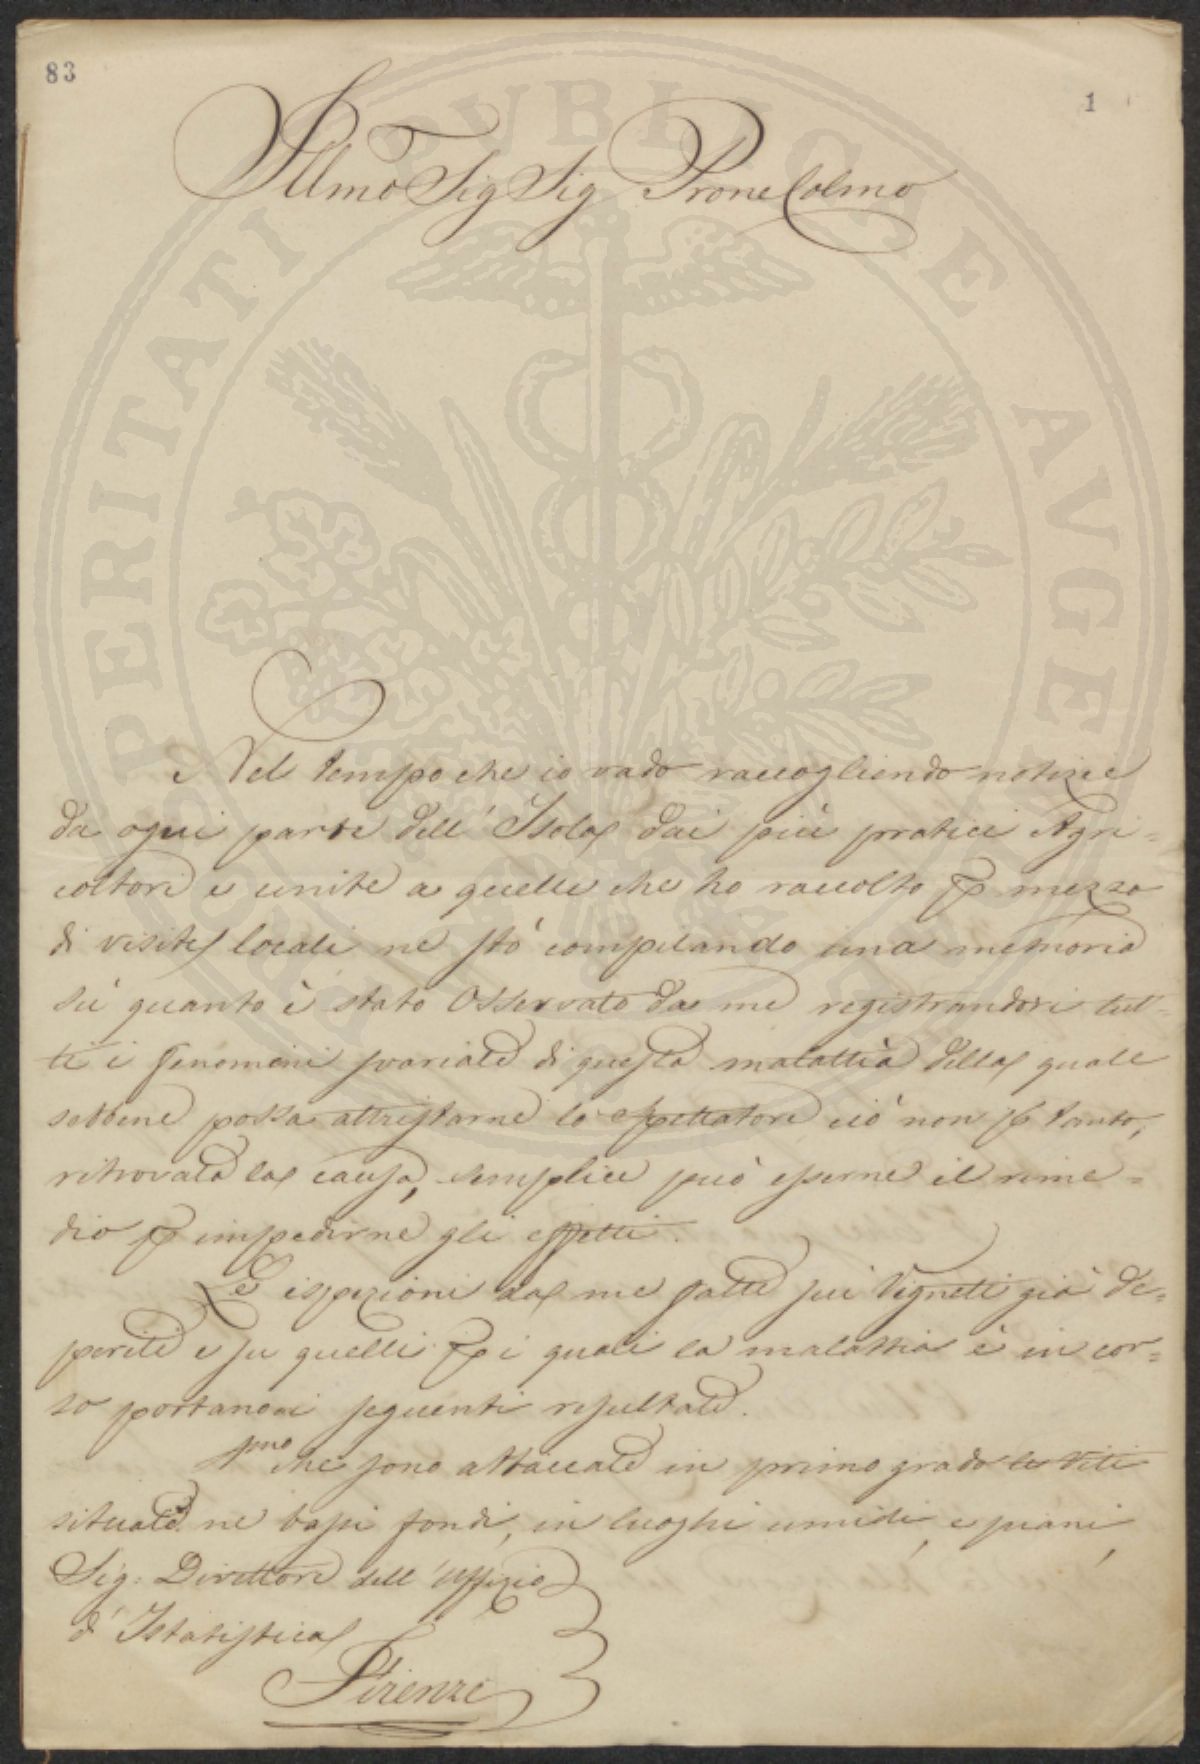 83
1
Illmo Sig Sig Prone Colmo
Nel tempo che io vado raccogliendo notizie
da ogni parte dell' Isola dai più pratici Agri=
coltori e unite a quelle che ho raccolto p mezzo
di visite locali ne stò compilando una memoria
sù quanto è stato Osservato da me registrandovi tut=
ti i fenomeni svariati di questa malattia della quale
sebbene possa attristarne lo spettatore ciò non p tanto,
ritrovata la causa, semplice può esserne il rime=
dio p impedirne gli effetti.
Le ispezioni da me fatte sui Vigneti già de=
periti e su quelli p i quali la malattia è in cor=
so portano ai seguenti resultati.
1mo che sono attaccate in primo grado le Viti
situate ne bassi fondi, in luoghi umidi, e piani,
Sig: Direttore dell' Uffizio
d' Istatistica
Firenze
PERITATI PVBLICÆ AVGE